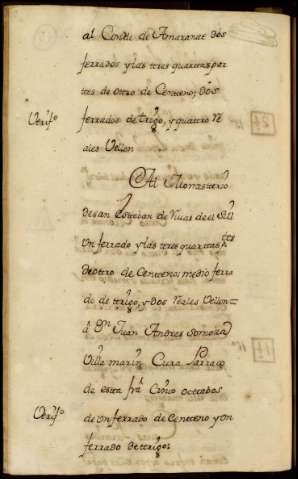 al Conde de Amarante dos
ferrados y las tres quartas par
tes de otro de Centeno; dós
ferrados de trigo, y quatro rs
ales Vellon
Al Monasterio
de san Esteban de Rivas de el Sil
Un ferrado y las tres quartas ptes
de otro de Centeno; medio ferra
do de trigo, y dos reales Vellon=
á Dn Juan Andres Somoza
Villamarin Cura Parraco
de esta
de Un ferrado de Centeno y Un
ferrado de trigo